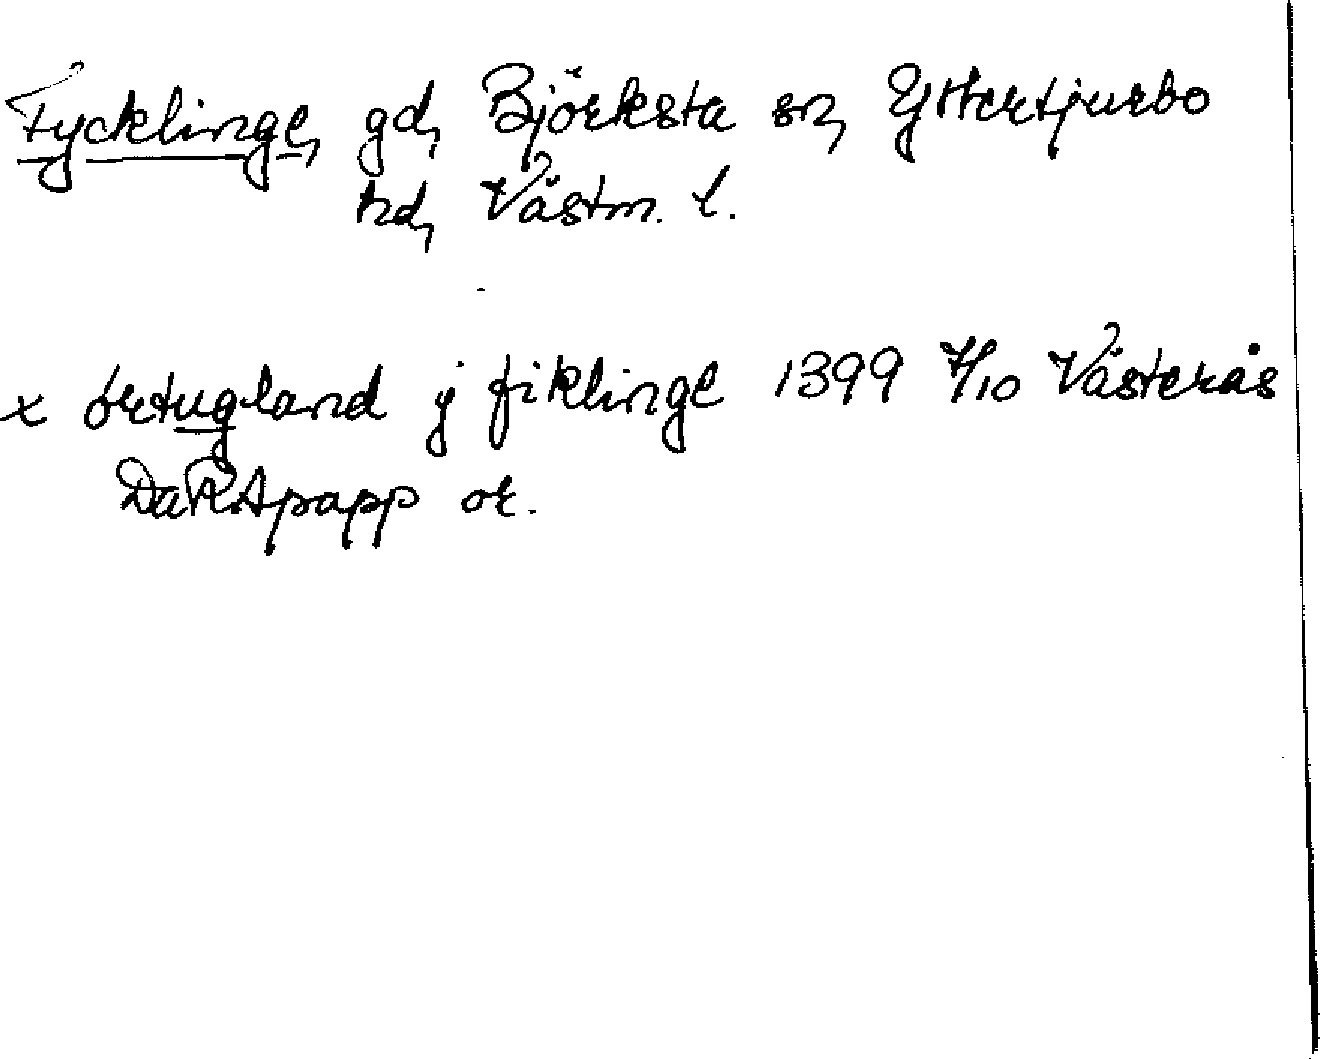 Fycklinge, gd, Björksta sn, Yttertjurbo
hd, Västm. l.
x örtugland j fiklinge 1399 7/10 Västerås
DaRApapp or.